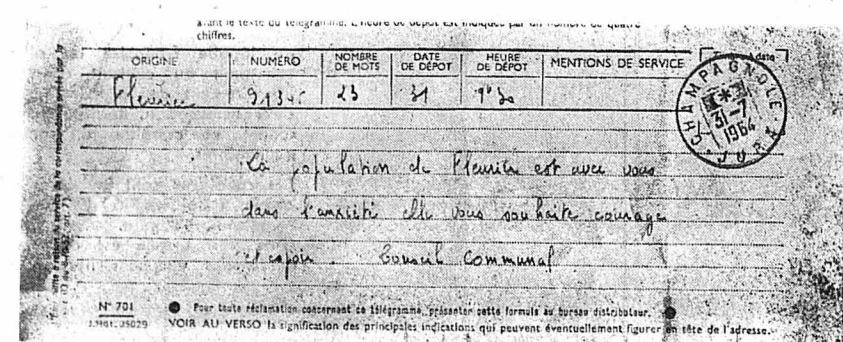 avant le texte du télégramme. L'heure de dépôt est indiquée par un nombre de quatre
chiffres.
ORIGINE NUMÉRO NOMBRE DE MOTS DATE DE DÉPOT HEURE DE DÉPOT MENTIONS DE SERVICE
Fleurier 23 31 9h30
CHAMPAGNOLE
31-7
1964
JURA
La population de Fleurier est avec vous
dans l'anxiété elle vous souhaite courage
et espoir. Conseil Communal
N° 701 Pour toute réclamation concernant ce télégramme, présenter cette formule au bureau distributeur.
VOIR AU VERSO la signification des principales indications qui peuvent éventuellement figurer en tête de l'adresse.